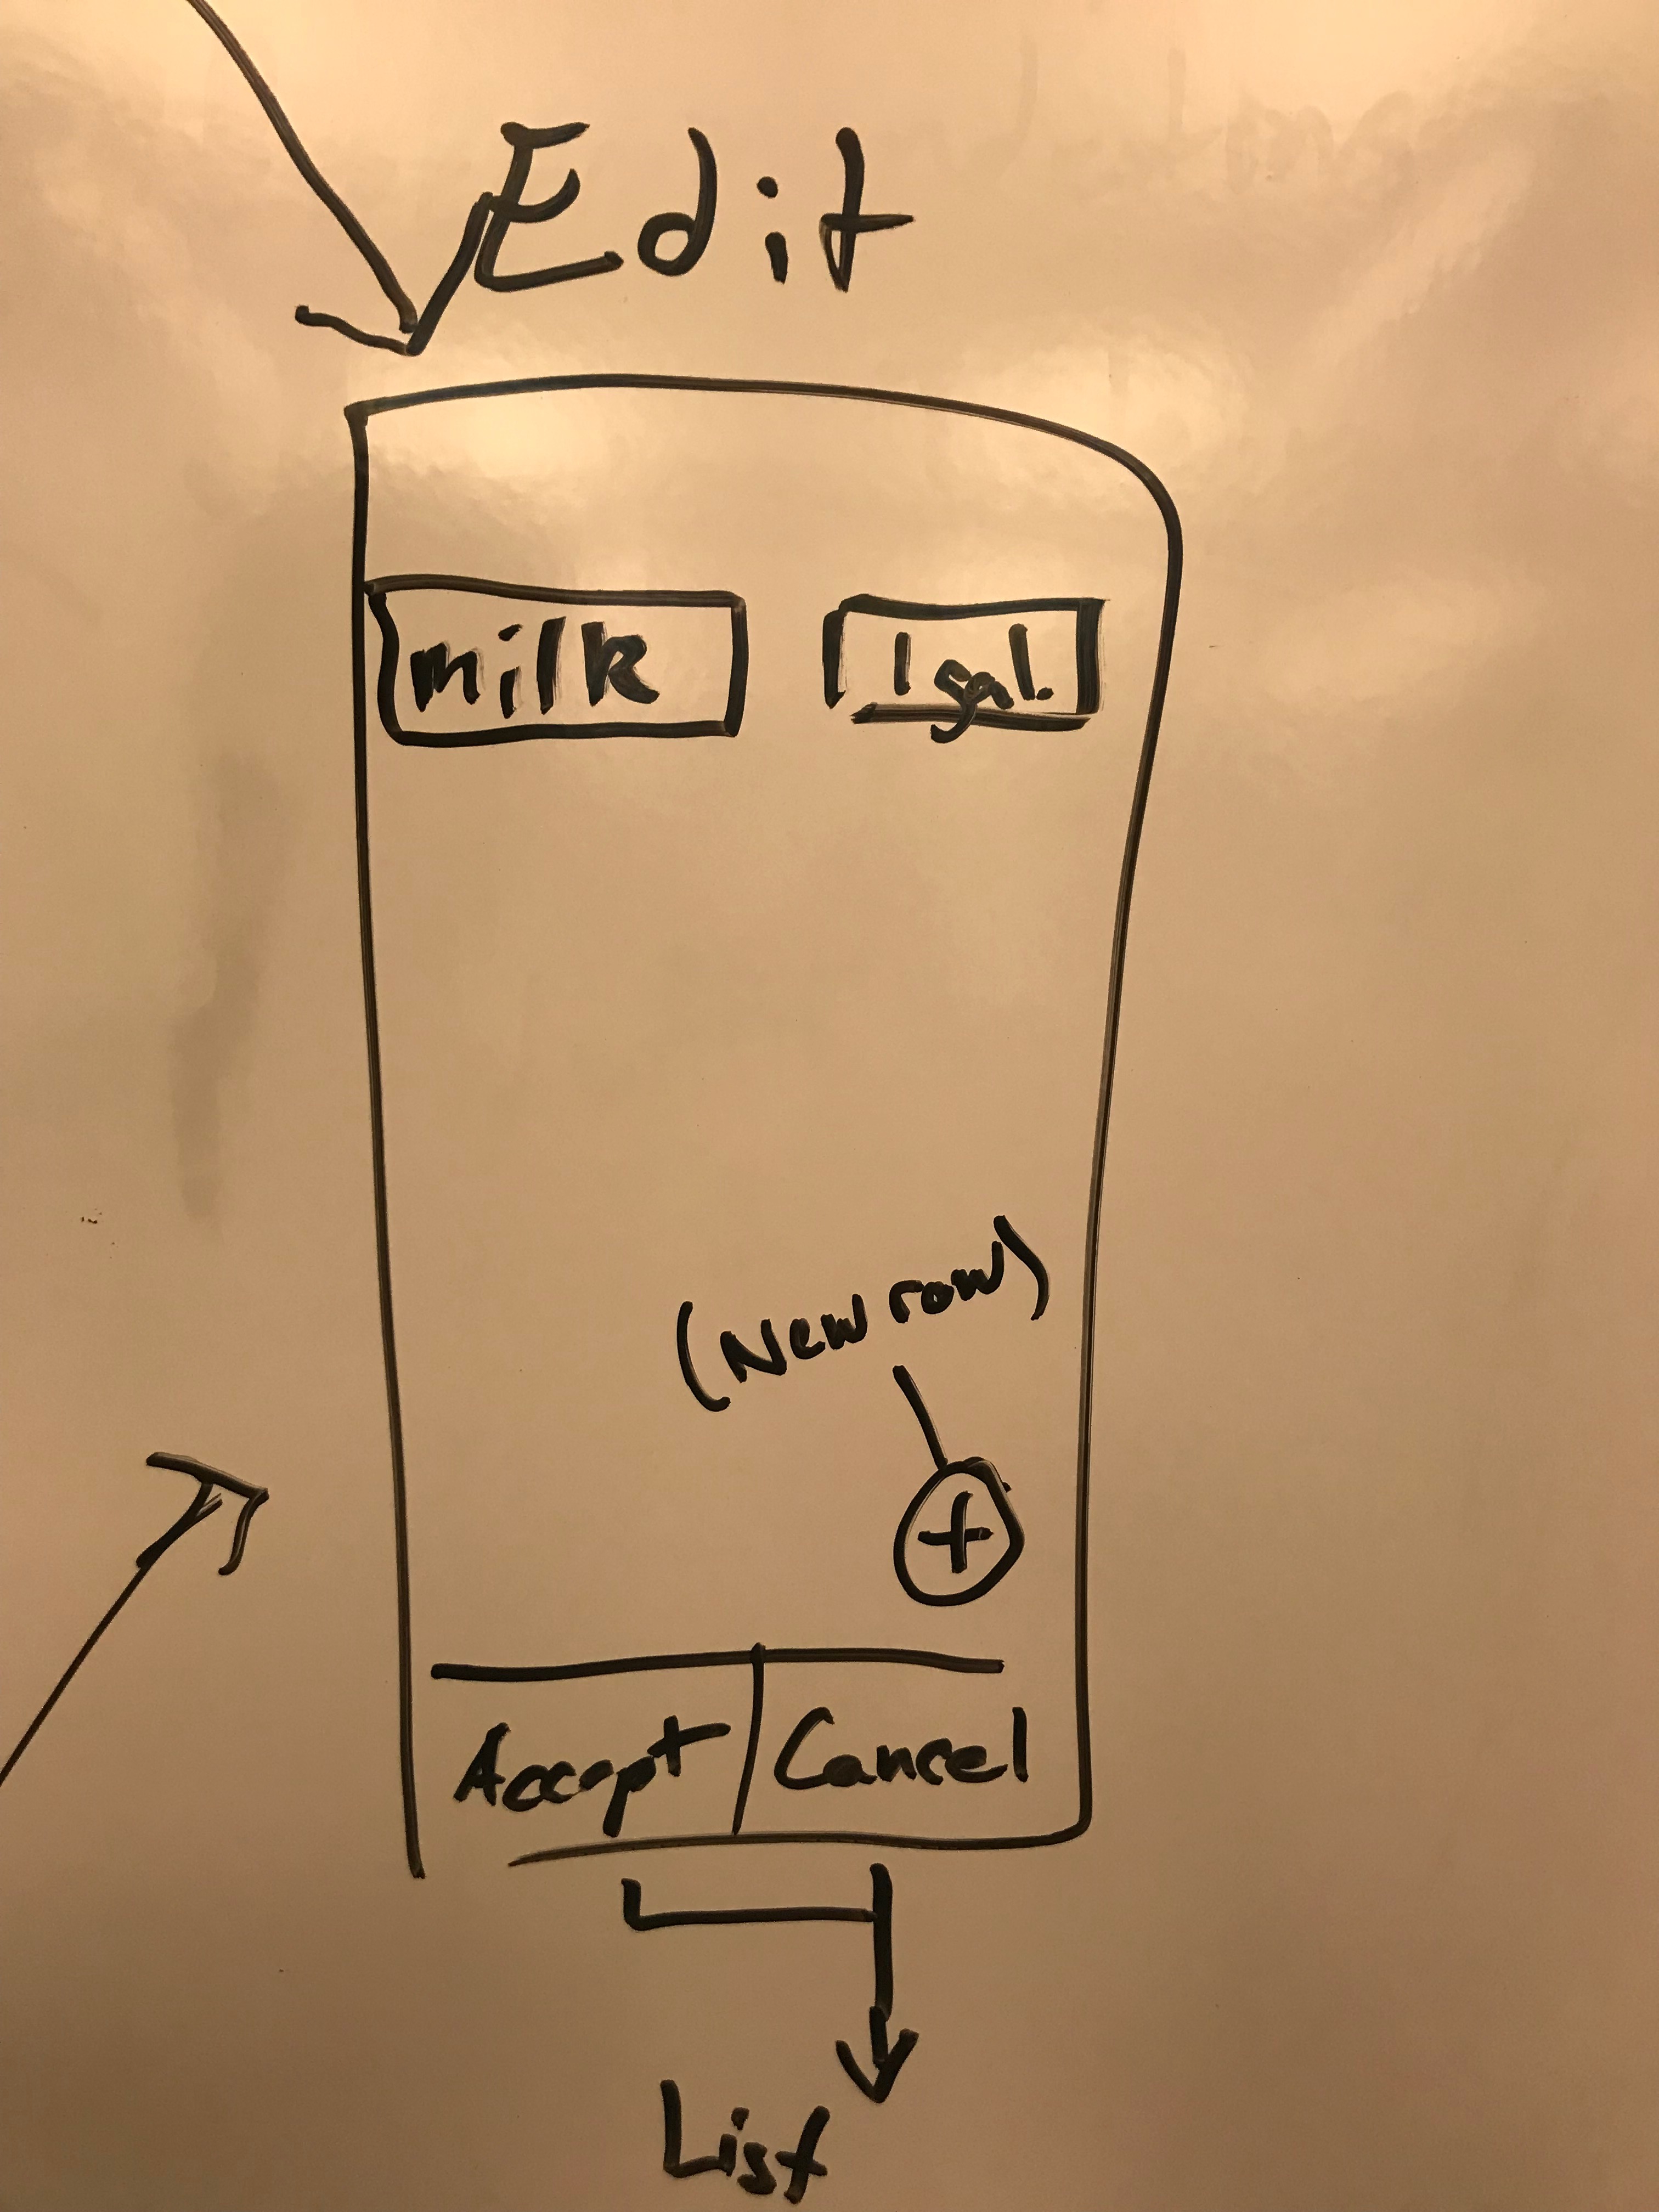 Edit
milk 1 gal.
(New row)
+
Accept Cancel
List